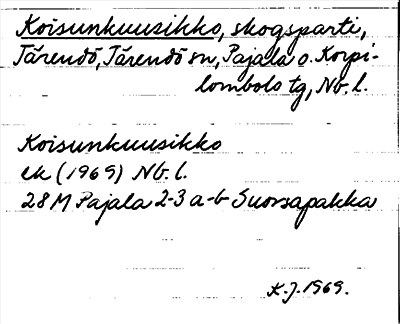 Koisunkuusikko, skogsparti,
Tärendö, Tärendö sn, Pajala o. Korpi-
lombolo tg, Nb. l.
Koisunkuusikko
ek (1969) Nb. l.
28 M Pajala 2-3 a-b Suorsapakka
K.J. 1969.